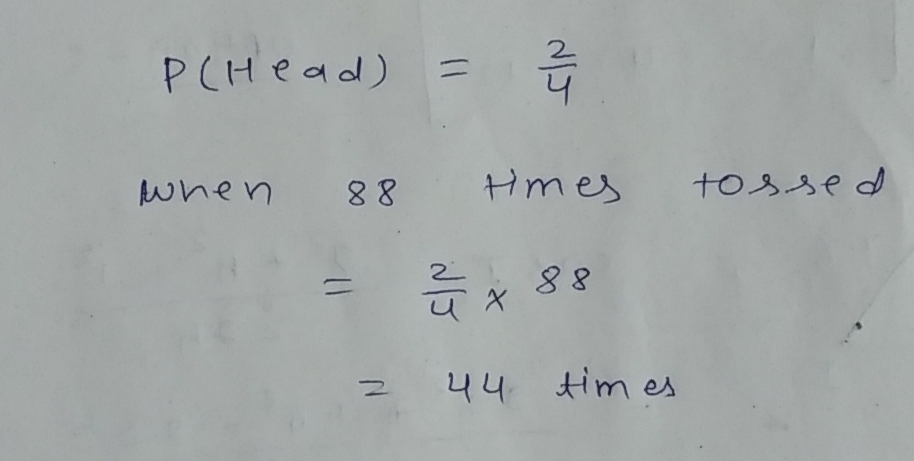 P(Head) = 2/4
when 88 times tossed
= 2/4 x 88
= 44 times